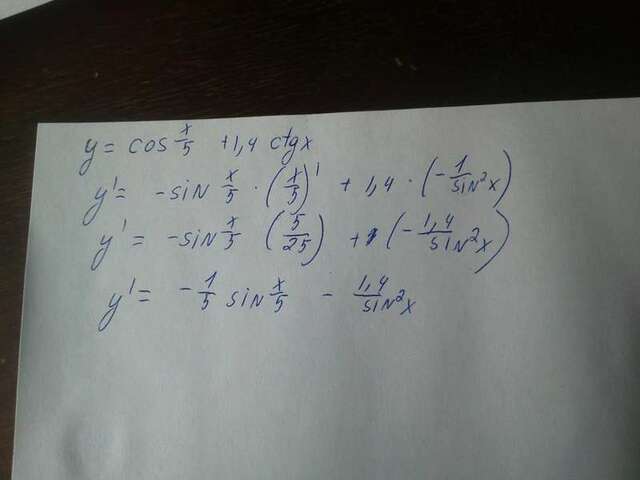 y = cos x/5 + 1,4 ctgx
y' = -sin x/5 · (x/5)' + 1,4 · (-1/sin²x)
y' = -sin x/5 (5/25) + (-1,4/sin²x)
y' = -1/5 sin x/5 - 1,4/sin²x